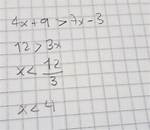 4x+9>7x-3
12>3x
x<12/3
x<4